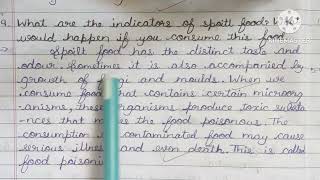 9. What are the indicators of spoilt food? What
would happen if you consume this food.
Spoilt food has the distinct taste and
odour. Sometimes it is also accompanied by
growth of and moulds. When we
consume food that contains certain microorg
-anisms, these organisms produce toxic substa
-nces that makes the food poisonous. The
consumption contaminated food may cause
serious illness and even death. This is called
food poisoni